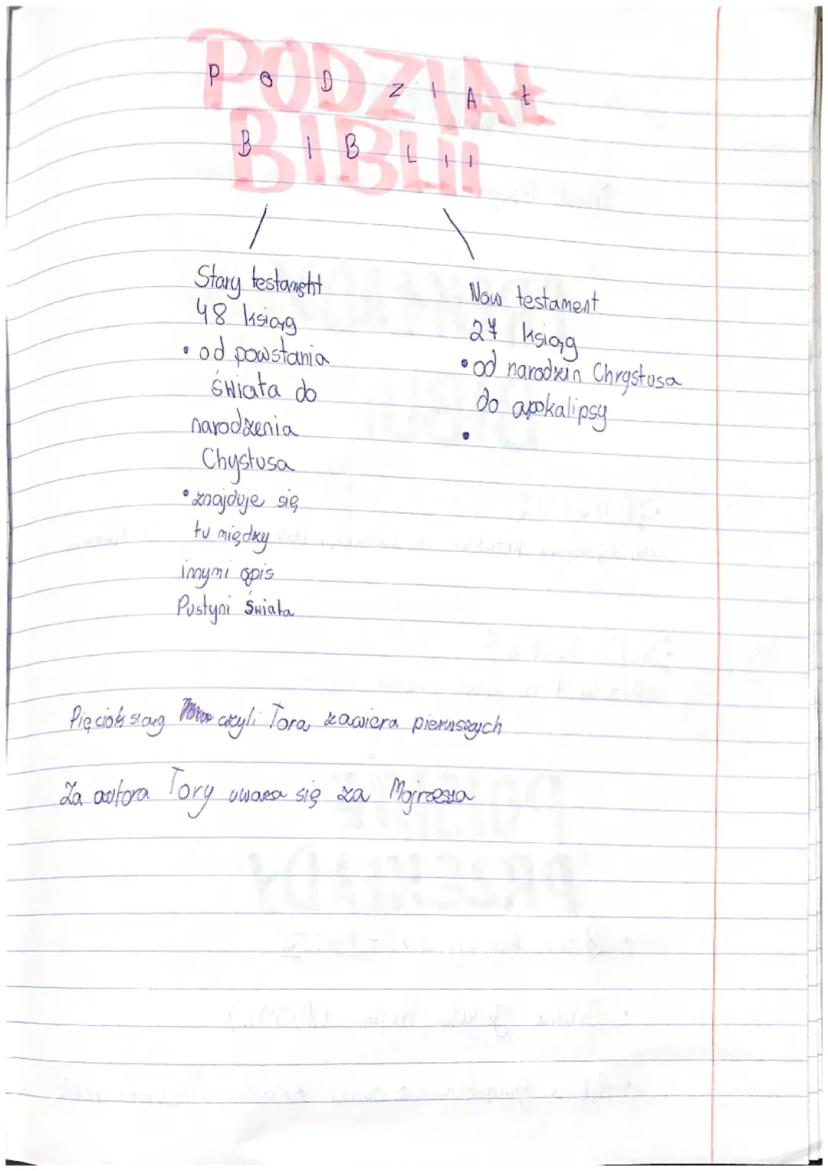 PODZIAŁ
BIBLII
Stary testament
48 ksiąg
• od powstania
świata do
narodzenia
Chystusa
• znajduje się
tu między
innymi opis
Pustyni Świata
Now testament
27 ksiąg
• od narodzin Chrystusa
do apokalipsy
•
Pięcioksiąg czyli Tora zawiera pierwszych
Za autora Tory uważa się za Mojrzesza